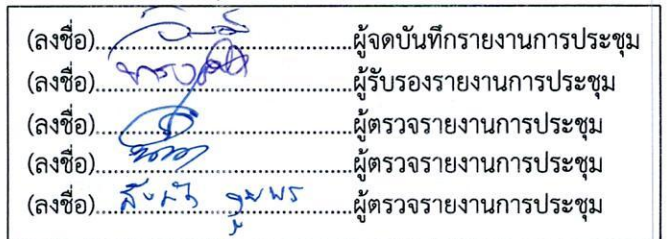 (ลงชื่อ)..............................ผู้จดบันทึกรายงานการประชุม
(ลงชื่อ)..............................ผู้รับรองรายงานการประชุม
(ลงชื่อ)..............................ผู้ตรวจรายงานการประชุม
(ลงชื่อ)..............................ผู้ตรวจรายงานการประชุม
(ลงชื่อ)..............................ผู้ตรวจรายงานการประชุม